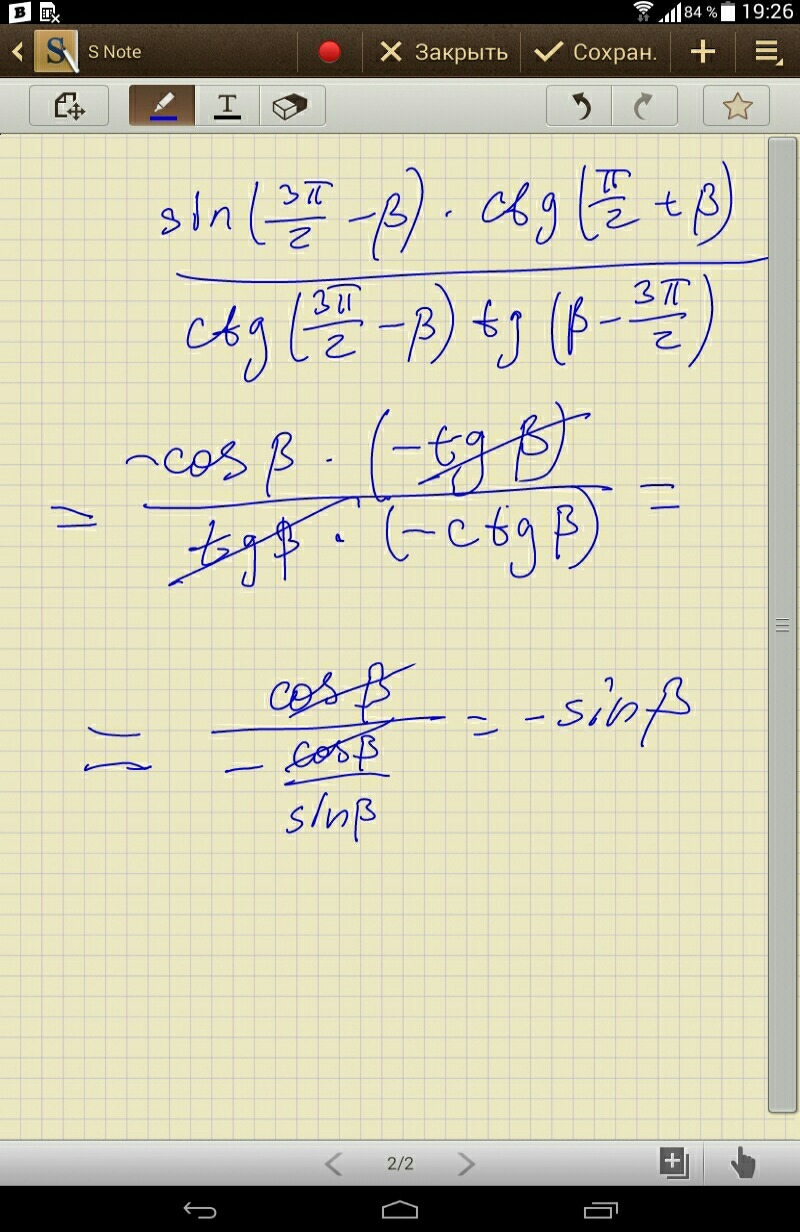 B 84 % 19:26
S S Note Закрыть Сохран.
T
sin(3π/2 - β) · ctg(π/2 + β)
ctg(3π/2 - β) tg(β - 3π/2)
= -cos β · (-tg β) / tg β · (-ctg β) =
= cos β / - cos β / sin β = - sin β
2/2